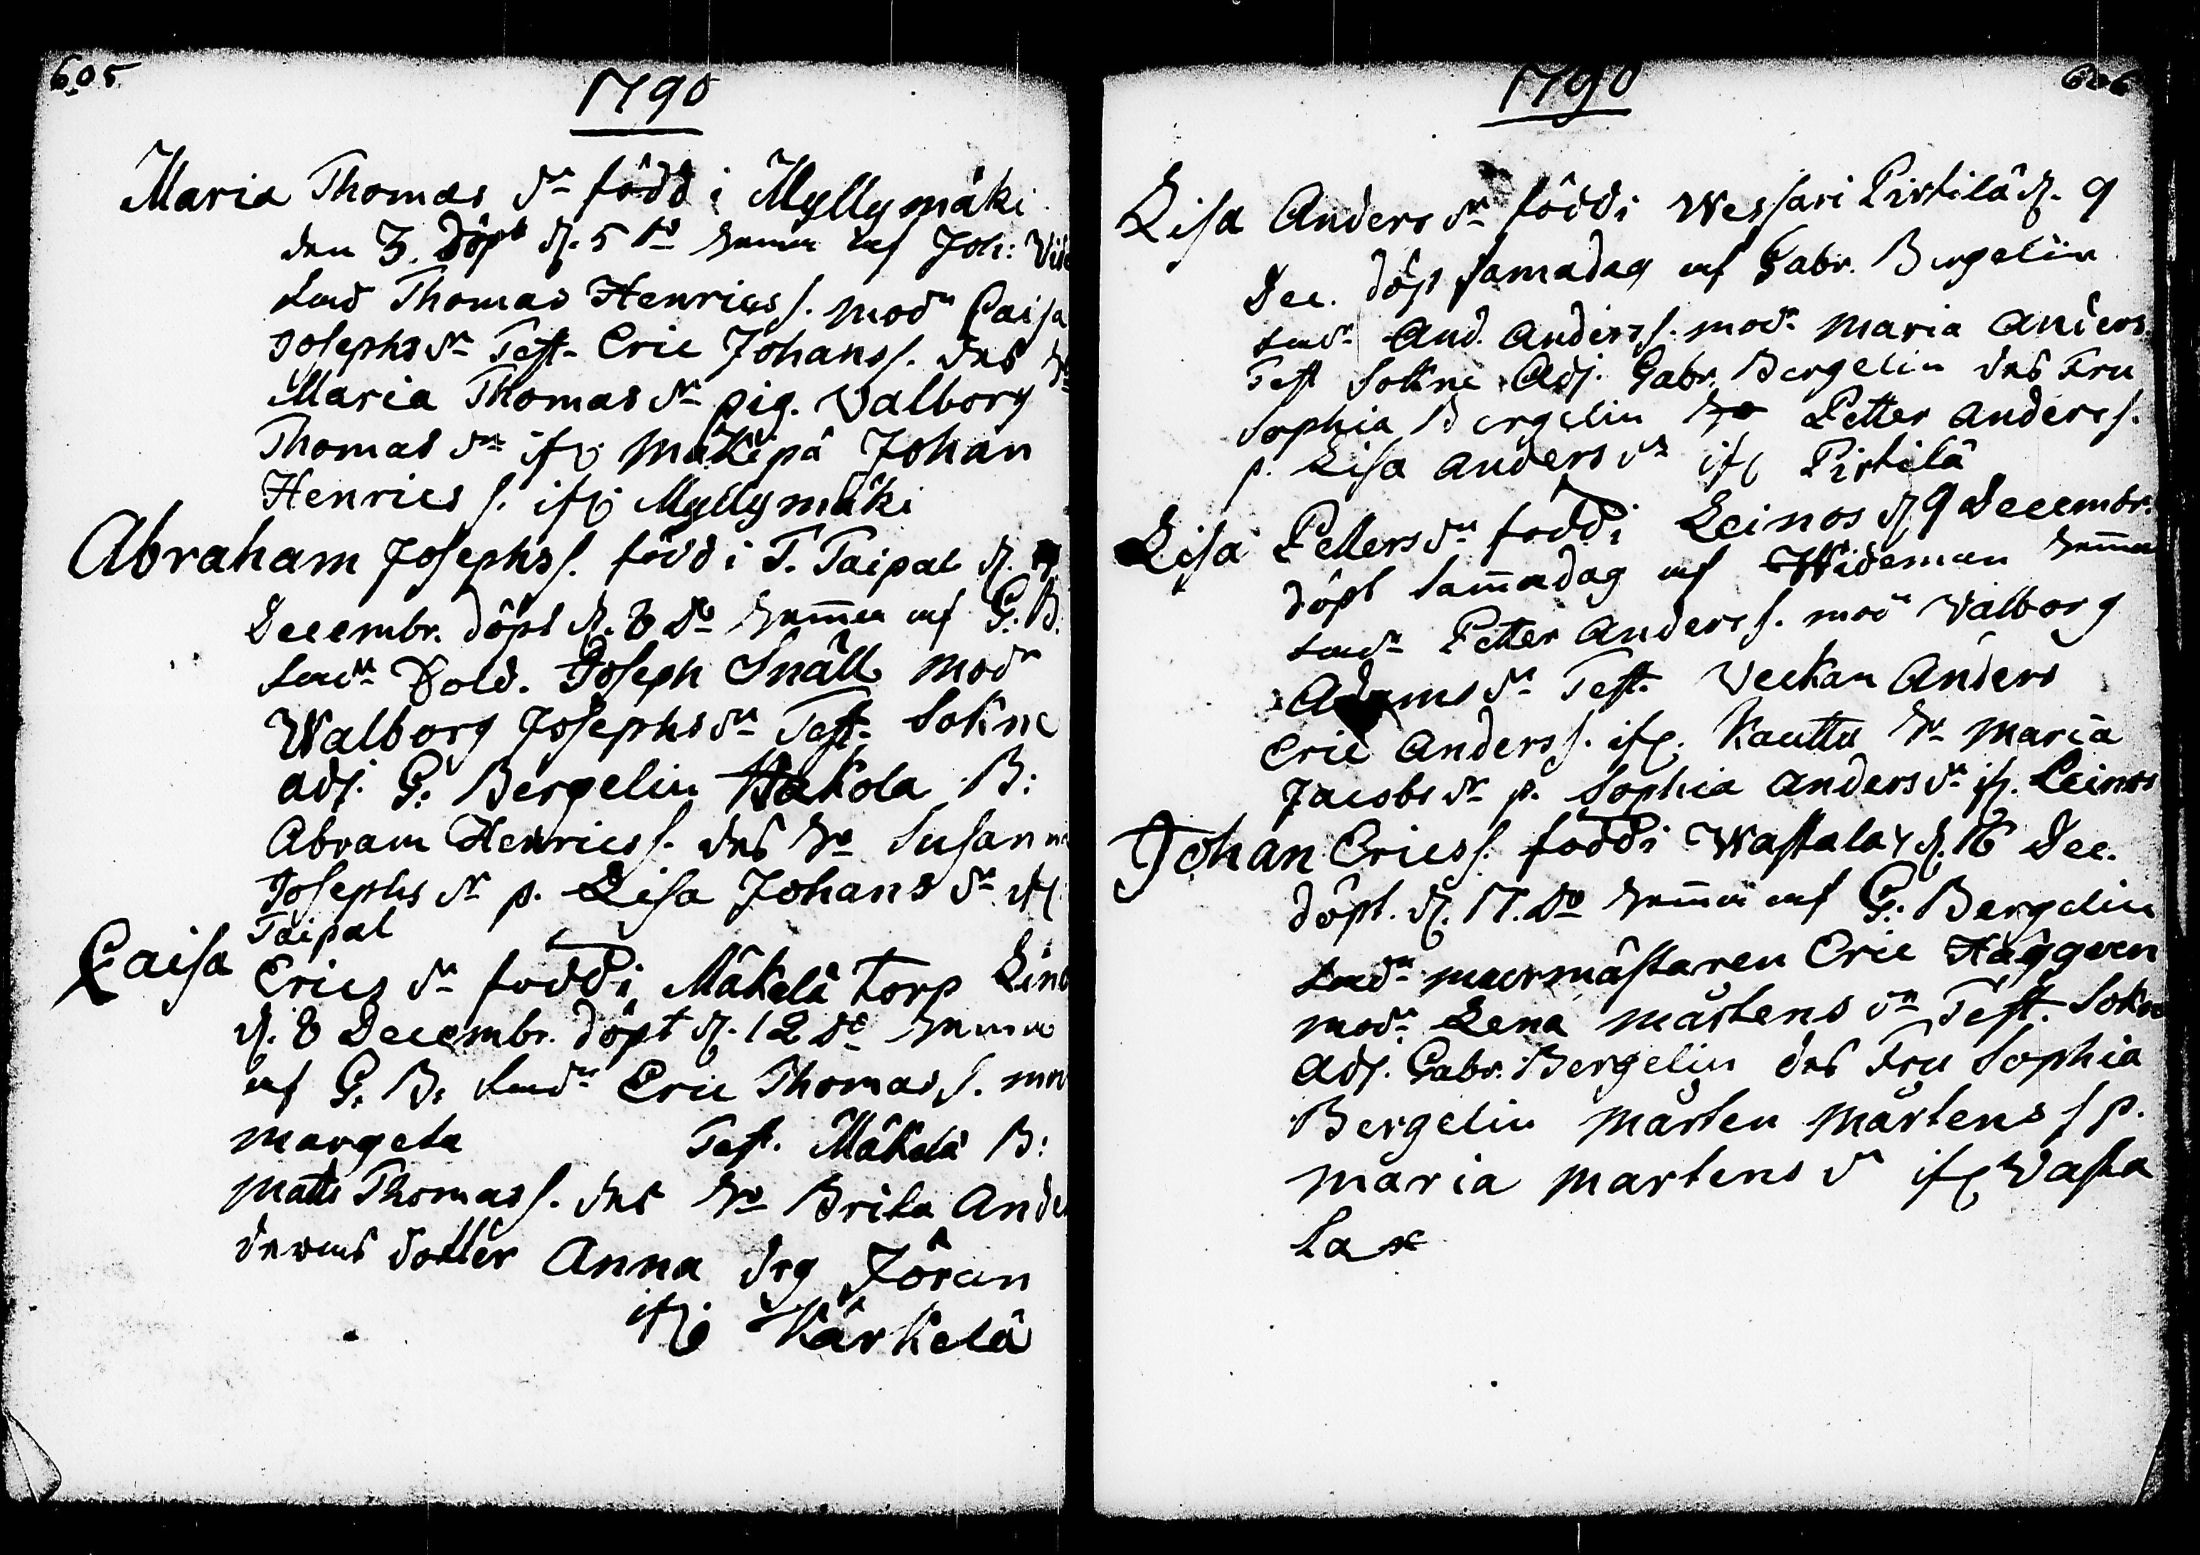 605
1790
Maria Thomas dr född i Myllymäki
den 3. döpt d. 5 do hemma af Joh: Vide
Fad Thomas Henrics s. modr Caisa
Josephs dr Test. Eric Johans s. des h
Maria Thomas dr pig. Valborg
Thomas dr ifr. Mäkipä Johan
Henrics s. ifr. Myllymäki
Abraham Josephs s. född i T. Taipal d.
Decembr. döpt d. 8 do hemma af G. B.
Fadr Sold. Joseph Snäll modr
Walborg Josephs dr Test. Sokne
adj. G: Bergelin Hakola B:
Abram Henrics s. des ho Susanna
Josephs dr p. Lisa Johans dr ifr.
Taipal
Caisa Erics dr född i Mäkelä torp
d. 8 Decembr. döpt d. 12 do hemma
af G. B. Fadr Eric Thomas s. mod
Margeta Test. Mäkelä B:
Matts Thomas s. des ho Brita Ande
dotter Anna drg Jöran
ifr. Kärkelä
1790
606
Lisa Anders dr född i Wessari Pirtilä d. 9
Dec. döpt samadag af Gabr. Bergelin
Fadr And. Anders s. modr Maria Anders
Test Sokne Adj. Gabr. Bergelin des Fru
Sophia Bergelin Petter Anders s.
p. Lisa Anders dr ifr Pirtilä
Lisa Petters dr född i Leinos d. 9 Decembr.
döpt sammadag af Wideman hemma
Fadr Petter Anders s. mod Valborg
Adams dr Test. Veckan Anders
Eric Anders s. ifr. Kauttu ho Maria
Jacobs dr p. Sophia Anders dr ifr. Leinos
Johan Erics s. född i Wastala d. 16 Dec.
döpt. d. 17. do hemma af G: Bergelin
Fadr murmästaren Eric Häggren
modr Lena Mårtens dr Test. Sokne
adj. Gabr. Bergelin des Fru Sophia
Bergelin Mårten Mårtens s p.
Maria Martens d ifr Vasta
la